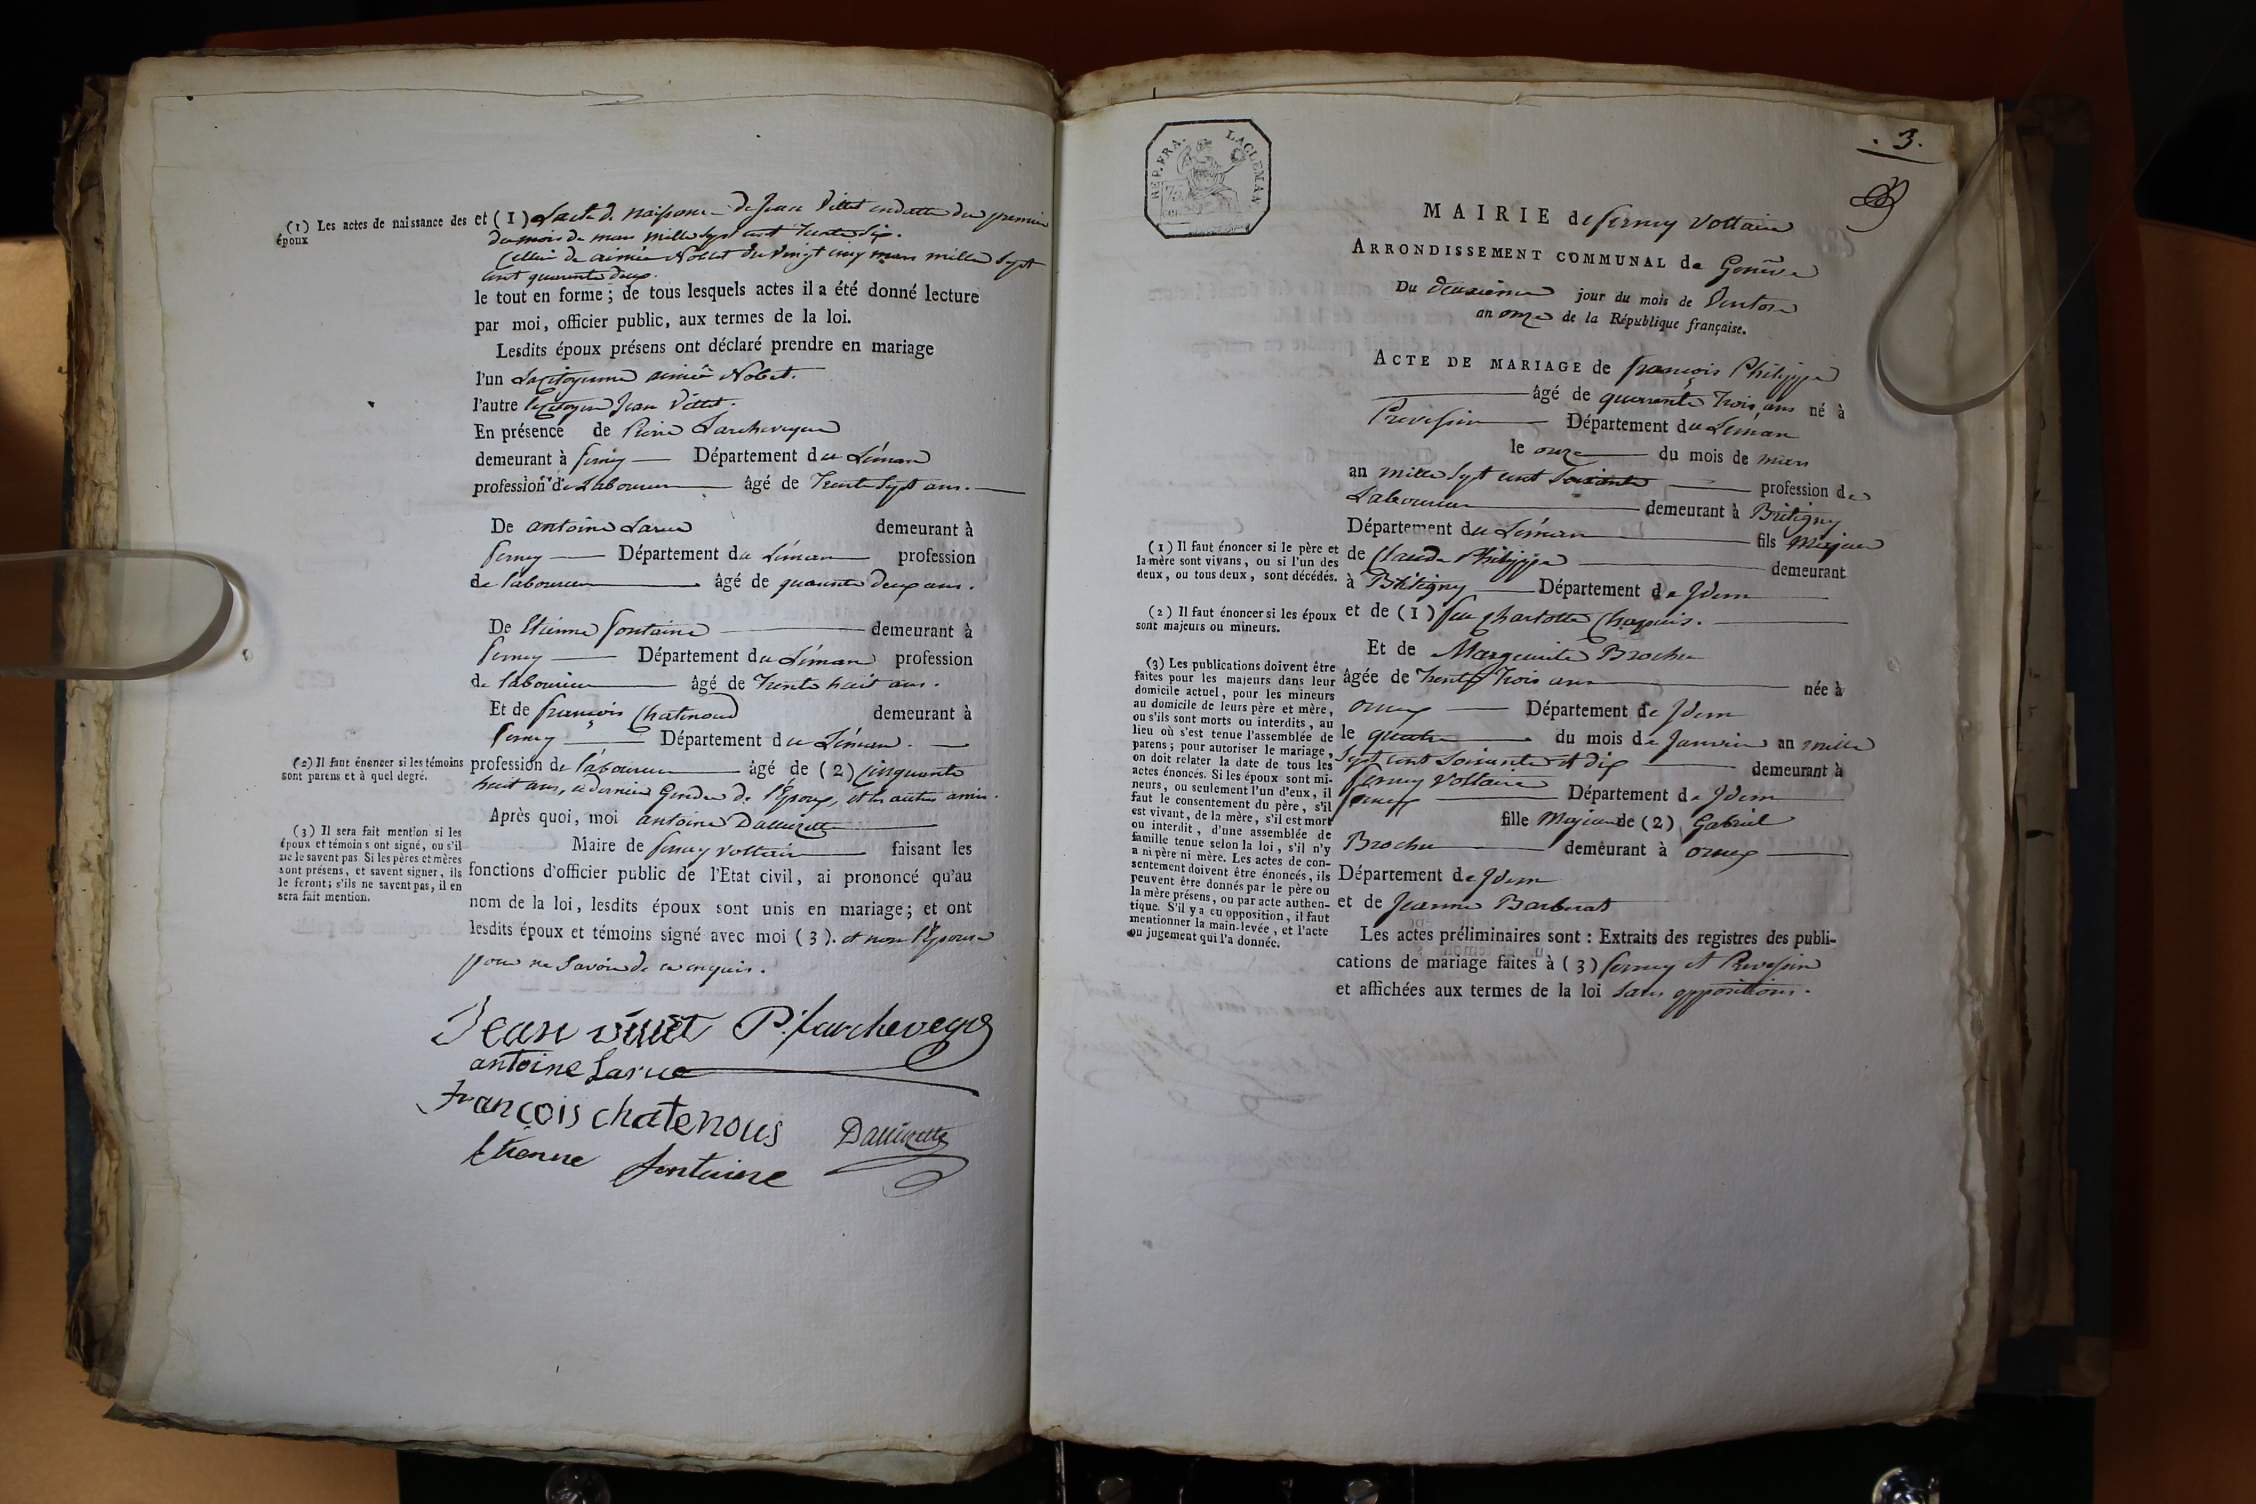 (1) Les actes de naissance des
époux
et (1) L'acte de naissance de Jean Villet endatte du premier
du mois de mars mille sept cent trente six.
Celui de aimée Nobet du vingt cinq mars mille sept
cent quarente deux.
le tout en forme ; de tous lesquels actes il a été donné lecture
par moi, officier public, aux termes de la loi.
Lesdits époux présens ont déclaré prendre en mariage
l'un La citoyenne aimée Nobet.
l'autre le Citoyen Jean Villet.
En présence de Pierre Larcheveque
demeurant à ferney Département du Léman
profession de Laboureur âgé de trente sept ans.
De antoine Larue demeurant à
ferney Département du Léman profession
de laboureur âgé de quarente deux ans.
De Etienne fontaine demeurant à
ferney Département du Léman profession
de laboureur âgé de trente huit ans.
Et de françois Chatenoud demeurant à
ferney Département du Léman.
(2) Il faut énoncer si les témoins
sont parens et à quel degré.
profession de laboureur âgé de (2) Cinquante
huit ans, ce dernier Gendre de l'Epoux, et les autres amis.
Après quoi, moi antoine
Maire de ferney voltaire faisant les
fonctions d'officier public de l'Etat civil, ai prononcé qu'au
nom de la loi, lesdits époux sont unis en mariage ; et ont
lesdits époux et témoins signé avec moi (3). et non l'Epouse
pour ne Savoir de ce enquis.
(3) Il sera fait mention si les
époux et témoins ont signé, ou s'il
ne le savent pas. Si les pères et mères
sont présens, et savent signer, ils
le feront ; s'ils ne savent pas, il en
sera fait mention.
Jean villet P. Larcheveque
antoine Larue
françois chatenous
Etienne fontaine
. 3.
REP. FRA.
MAIRIE de ferney Voltaire
ARRONDISSEMENT COMMUNAL de Genêve
Du deuxieme jour du mois de Ventose
an onze de la République française.
ACTE DE MARIAGE de françois Philippe
âgé de quarente trois ans né à
Prevessin Département du Léman
le onze du mois de mars
an mille sept cent Soixante profession de
Laboureur demeurant à Brétigny
Département du Léman fils Majeur
de Claude Philippe demeurant
à Brétigny Département de Idem
et de (1) feu Charlotte Chapuis.
Et de Marguerite Brochu
âgée de trente trois ans née à
ornex Département de Idem
le quatre du mois de Janvier an mille
Sept cent Soixante et dix demeurant à
ferney Voltaire
ornex Département de Idem
fille Majeure de (2) Gabriel
Brochu demeurant à ornex
Département de Idem
et de Jeanne Barberat
Les actes préliminaires sont : Extraits des registres des publi-
cations de mariage faites à (3) ferney et Prevessin
et affichées aux termes de la loi Sans oppositions.
(1) Il faut énoncer si le père et
la mère sont vivans, ou si l'un des
deux, ou tous deux, sont décédés.
(2) Il faut énoncer si les époux
sont majeurs ou mineurs.
(3) Les publications doivent être
faites pour les majeurs dans leur
domicile actuel, pour les mineurs
au domicile de leurs père et mère,
ou s'ils sont morts ou interdits, au
lieu où s'est tenue l'assemblée de
parens ; pour autoriser le mariage,
on doit relater la date de tous les
actes énoncés. Si les époux sont mi-
neurs, ou seulement l'un d'eux, il
faut le consentement du père, s'il
est vivant, de la mère, s'il est mort
ou interdit, d'une assemblée de
famille tenue selon la loi, s'il n'y
a ni père ni mère. Les actes de con-
sentement doivent être énoncés, ils
peuvent être donnés par le père ou
la mère présens, ou par acte authen-
tique. S'il y a eu opposition, il faut
mentionner la main-levée, et l'acte
ou jugement qui l'a donnée.